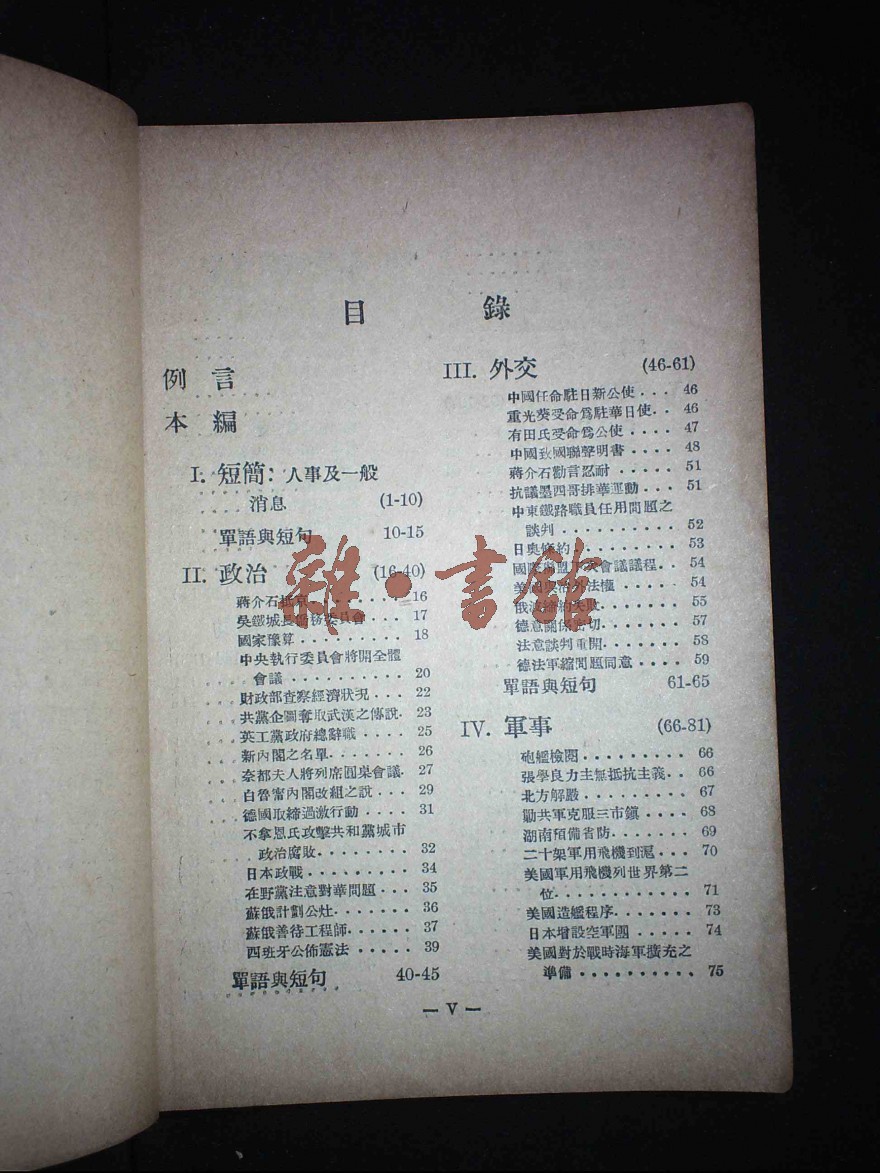 目 錄
例 言
本 編
I. 短簡：人事及一般
消息 (1-10)
單語與短句 10-15
II. 政治 (16-40)
蔣介石抵京 16
吳鐵城長僑務委員會 17
國家豫算 18
中央執行委員會將開全體
會議 20
財政部查察經濟狀況 22
共黨企圖奪取武漢之傳說 23
英工黨政府總辭職 25
新內閣之名單 26
奈都夫人將列席圓桌會議 27
白魯甯內閣改組之說 29
德國取締過激行動 31
不拿恩氏攻擊共和黨城市
政治腐敗 32
日本政戰 34
在野黨注意對華問題 35
蘇俄計劃公灶 36
蘇俄善待工程師 37
西班牙公佈憲法 39
單語與短句 40-45
III. 外交 (46-61)
中國任命駐日新公使 46
重光葵受命爲駐華日使 46
有田氏受命爲公使 47
中國致國聯聲明書 48
蔣介石勸言忍耐 51
抗議墨西哥排華運動 51
中東鐵路職員任用問題之
談判 52
日奧條約 53
國際聯盟下次會議議程 54
美國 治外法權 54
俄波締約失敗 55
德意關係密切 57
法意談判重開 58
德法軍縮問題同意 59
單語與短句 61-65
IV. 軍事 (66-81)
砲艦檢閱 66
張學良力主無抵抗主義 66
北方解嚴 67
勦共軍克服三市鎮 68
湖南預備省防 69
二十架軍用飛機到滬 70
美國軍用飛機列世界第二
位 71
美國造艦程序 73
日本增設空軍團 74
美國對於戰時海軍擴充之
準備 75
— V —
雜·書館